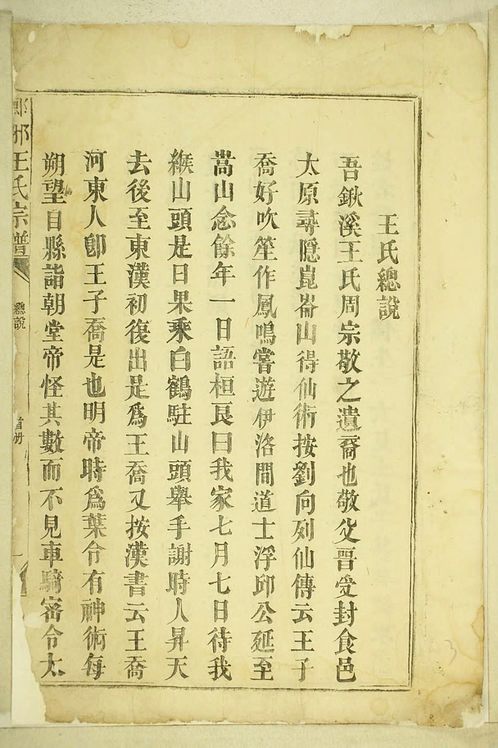 王氏總說
吾鍬溪王氏周宗敬之遺裔也敬父晉受封食邑
太原尋隱崑崙山得仙術按劉向列仙傳云王子
喬好吹笙作鳳鳴嘗遊伊洛間道士浮邱公延至
嵩山念餘年一日語桓良曰我家七月七日待我
緱山頭是日果乘白鶴駐山頭舉手謝時人昇天
去後至東漢初復出是爲王喬又按漢書云王喬
河東人卽王子喬是也明帝時爲葉令有神術每
朔望自縣詣朝堂帝怪其數而不見車騎審令太
琊王氏宗譜
總說
首册
一